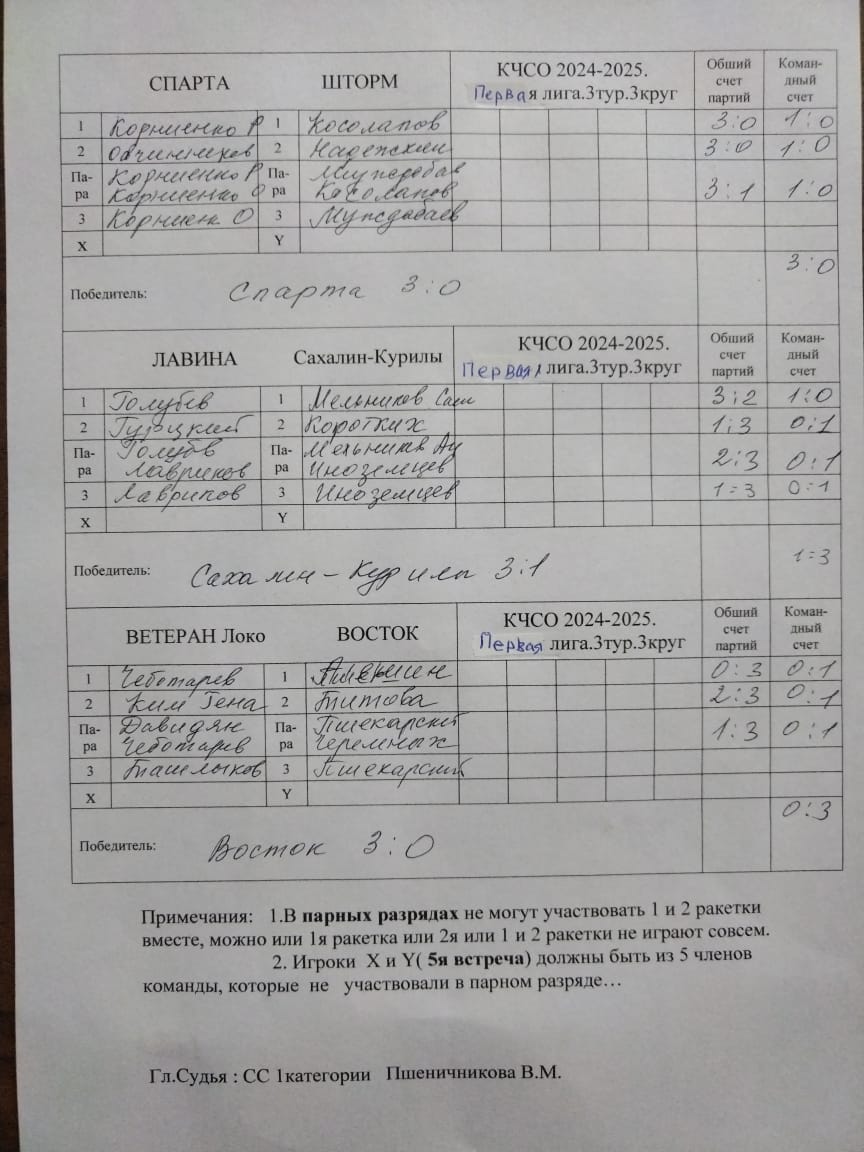 СПАРТА ШТОРМ КЧСО 2024-2025. Первая лига.3тур.3круг Общий счет партий Коман-дный счет
1 Корниенко Р 1 Косолапов 3:0 1:0
2 Овчинников 2 3:0 1:0
Па-ра Корниенко Р Па-ра
Корниенко О Косолапов 3:1 1:0
3 Корниен О 3
X Y
3:0
Победитель: Спарта 3:0
ЛАВИНА Сахалин-Курилы КЧСО 2024-2025. Первая лига.3тур.3круг Общий счет партий Коман-дный счет
1 Голубев 1 Мельников 3:2 1:0
2 2 Коротких 1:3 0:1
Па-ра Голубв Па-ра Мельников
Лавриков Иноземцев 2:3 0:1
3 Лавриков 3 Иноземцев 1=3 0:1
X Y
1=3
Победитель: Сахалин-Курилы 3:1
ВЕТЕРАН Локо ВОСТОК КЧСО 2024-2025. Первая лига.3тур.3круг Общий счет партий Коман-дный счет
1 Чеботарев 1 0:3 0:1
2 Ким Гена 2 Титова 2:3 0:1
Па-ра Давидян Па-ра Пшекарский
Чеботарев Черемных 1:3 0:1
3 Ташлыков 3 Пшекарский
X Y
0:3
Победитель: Восток 3:0
Примечания: 1.В парных разрядах не могут участвовать 1 и 2 ракетки
вместе, можно или 1я ракетка или 2я или 1 и 2 ракетки не играют совсем.
2. Игроки X и Y( 5я встреча) должны быть из 5 членов
команды, которые не участвовали в парном разряде…
Гл.Судья : СС 1категории Пшеничникова В.М.